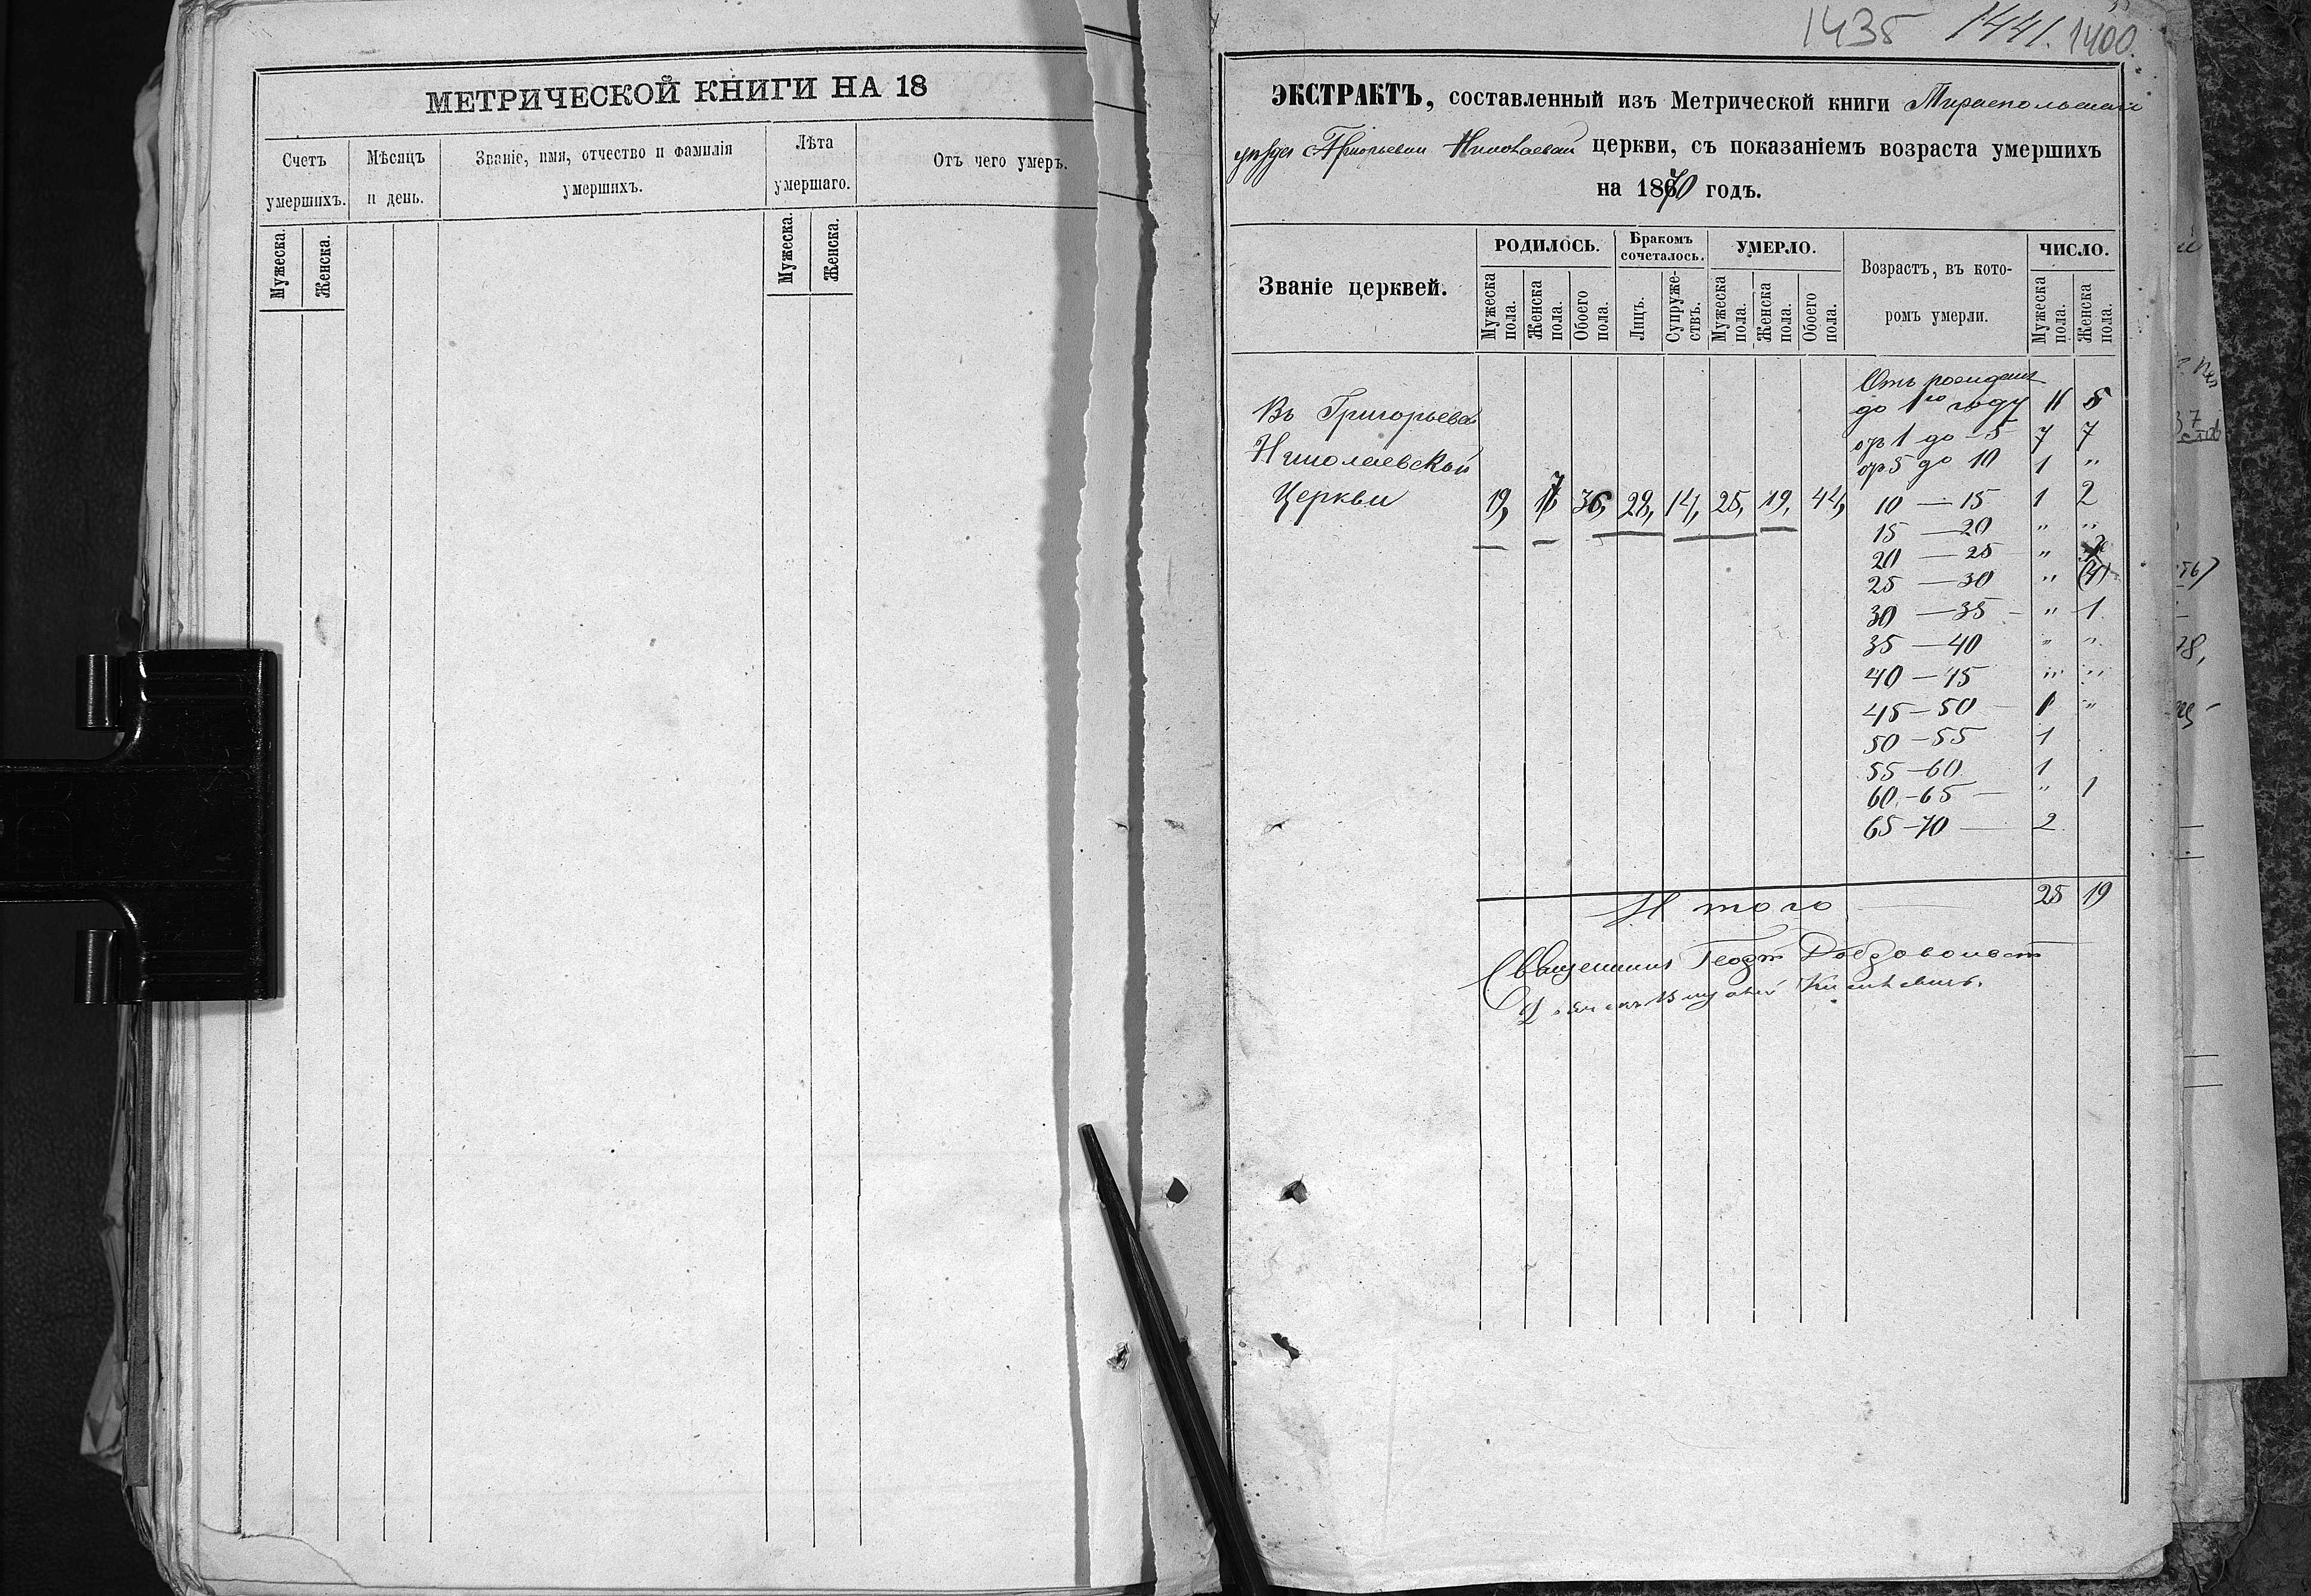 МЕТРИЧЕСКОЙ КНИГИ НА 18
Счетъ умершихъ.
Мѣсяцъ и день.
Званіе, имя, отчество и фамилія умершихъ.
Лѣта умершаго.
Отъ чего умеръ.
Мужеска.
Женска.
Мужеска.
Женска.
1435 1441. 1400.
ЭКСТРАКТЪ, составленный изъ Метрической книги Тираспольскаго
уѣзда Григорьевки Николаевской церкви, съ показаніемъ возраста умершихъ
на 1870 годъ.
Званіе церквей.
РОДИЛОСЬ.
Бракомъ сочеталось.
УМЕРЛО.
Возрастъ, въ которомъ умерли.
ЧИСЛО.
Мужеска пола.
Женска пола.
Обоего пола.
Лицъ.
Супружествъ.
Мужеска пола.
Женска пола.
Обоего пола.
Мужеска пола.
Женска пола.
Въ Григорьевск
Николаевской
Церкви 19, 17 36, 28, 14, 25, 19, 44,
Отъ рожденія
до 1го году 11 5
отъ 1 до 5 7 7
отъ 5 до 10 1 "
10 — 15 1 2
15 — 20 " "
20 — 25 "
25 — 30 "
30 — 35 - " 1
35 — 40 " "
40 — 45 " "
45 — 50 — 1 "
50 — 55 1
55 — 60 1
60 - 65 — " 1
65 - 70 — 2
Итого 25 19
Священникъ Георгій